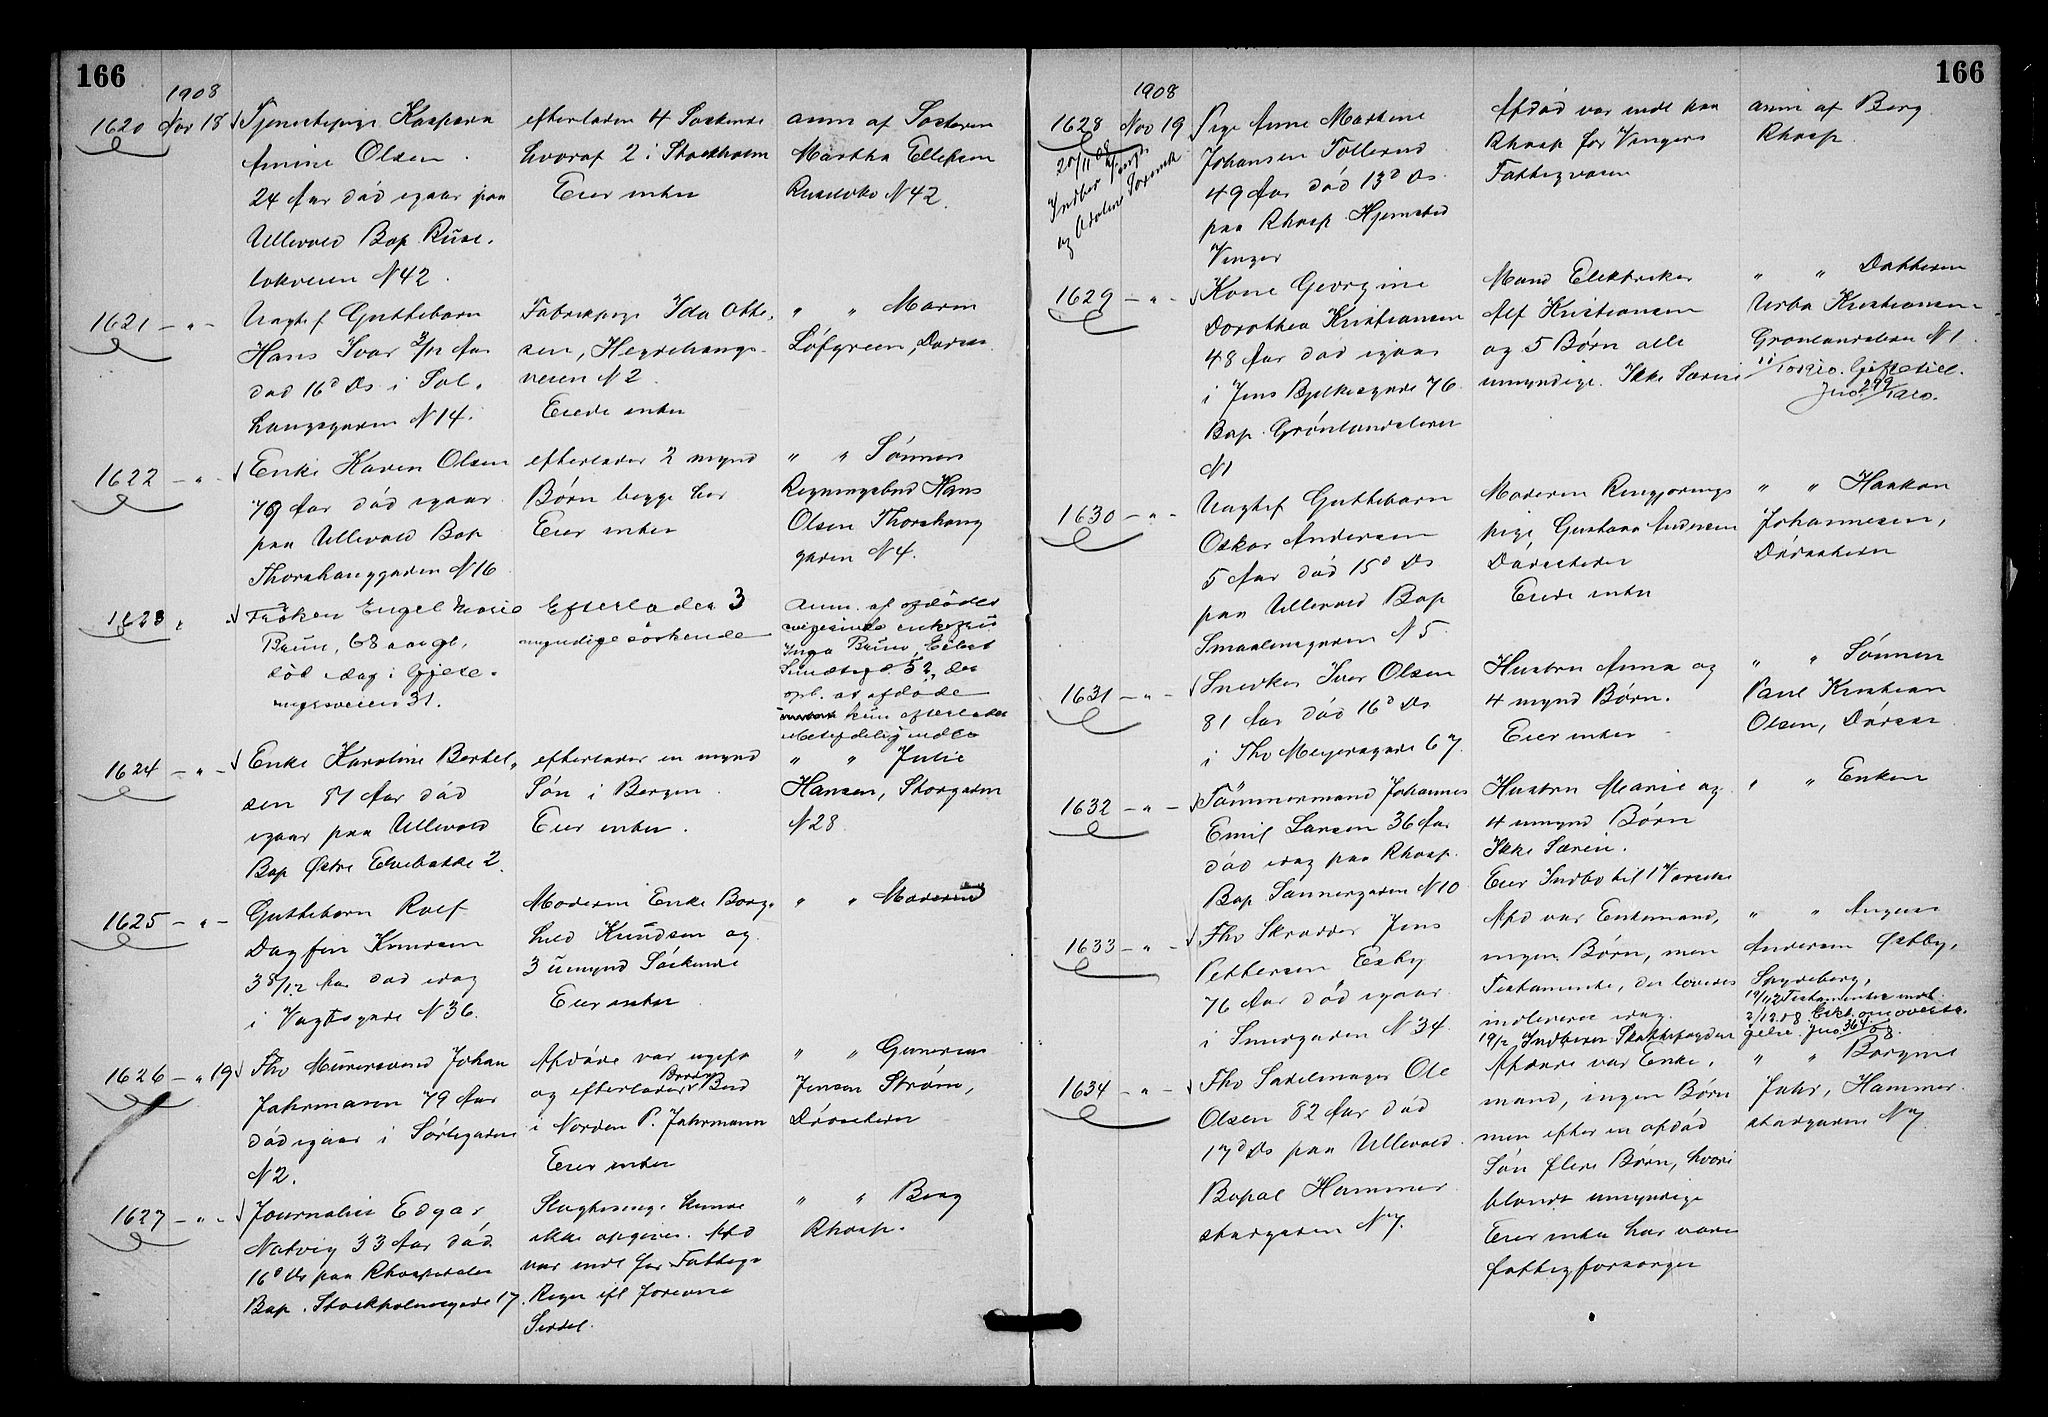 166
1908
1620 Nov 18 Tjenestepige Kaspara
Amine Olsen.
24 Aar död igaar paa
Ullevold Bop. Ruse-
lokveien N 42.
efterlader 4 Söskende
hvoraf 2 i Stockholm
Eier intet
anm af Söstern
Martha Ellefsen
Ruselokv N 42.
1621 - " - Uægtef Guttebarn
Hans Ivar 3/12 Aar
död 16d Ds i Sol-
haugsgaden N 14.
Fabrikpige Ida Otte-
sen, Hegdehaugs-
veien N 2.
Eiede intet
" " Maren
Löfgreen,
1622 - " - Enke Karen Olsen
79 Aar död igaar
paa Ullevold Bop
Thorshauggaden N 16
efterlader 2 mynd
Børn begge her
Eier intet
" " Sönnen
Regningsbud Hans
Olsen Thorshaug
gaden N 4.
1623 Fröken Engel Marie
Bruun, 68 aar gl.
död idag i Gjete-
myrsveien 31.
Efterlader 3
myndige söskende
Anm. af afdödes
svigerinde enkefru
Inga Bruun, Eilert
Sundtsgd. 52, der
opl. at afdöde
kun efterlader
ubetydelig indbo
1624 - " - Enke Karoline Bertel-
sen 51 Aar död
igaar paa Ullevold
Bop Østre Elvebakke 2.
efterlader en mynd
Sön i Bergen.
Eier intet.
" " Julie
Hansen, Storgaden
N 28.
1625 - " - Guttebarn Rolf
Dagfin Knudsen
3 5/12 Aar död idag
i Vogtsgade N 36.
Moderen Enke Borg-
hild Knudsen og
3 umynd Söskende
Eier intet
" " Moderen
1626 - " 19 Fhv Murersvend Johan
Jahrmann 79 Aar
död igaar i Sörligaden
N 2.
Afdöde var ugift
og efterlader
i Norden P. Jahrmann
Eier intet
" " Gunerius
Jensen Ström,
Dörvogteren
1627 - " - Journalist Edgar
Natvig 33 Aar död
16d Ds paa Rhospitalet
Bop. Stockholmsgade 17.
Slægtninge kunde
ikke opgives. Afd
var indl for Fattigv
Regn ifl Foreviste
Seddel.
" " Berg
Rhosp.
166
1908
1628 Nov 19 Pige Anne Martine
20/11 08
Indber Vinger
og Odalens Sorensk
Johansen Tollerud
49 Aar död 13d Ds.
paa Rhosp Hjemsted
Vinger
Afdöd var indl paa
Rhosp for Vingers
Fattigvæsen
anm af Berg
Rhosp.
1629 - " - Kone Georgine
Dorothea Kristiansen
48 Aar död igaar
i Jens Bjelkesgade 76
Bop. Grönlandsleret
N 1
Mand Elektriker
Alf Kristiansen
og 5 Børn alle
umyndige. Ikke Særeie
" " Datteren
Kristiansen
Grönlandsleret N 1
11/10 1910. Giftetill.
Jno. 299/1910.
1630 - " - Uægtef Guttebarn
Oskar Andersen
5 Aar död 15d Ds
paa Ullevold Bop
Smaalensgaden N 5.
Moderen Rengjörings
pige Gustava Andersen
Eiede intet
" " Haakon
Johannesen,
1631 - " - Snedker Iver Olsen
81 Aar död 16d Ds
i Thv Meyersgade 67.
Hustru Anna og
4 mynd Børn.
Eier intet
" " Sönnen
Paul Kristian
Olsen,
1632 - " - Tömmermand Johannes
Emil Larsen 36 Aar
död idag paa Rhosp.
Bop Sannergaden N 10
Hustru Marie og
4 umynd Børn
Ikke Særeie.
Eier Indbo til 1 Værelse
" " Enken
1633 - " - Fhv Skrædder Jens
Pettersen Esby
76 Aar död igaar
i Smergaden N 34.
Afd var Enkemand,
ingen Børn, men
Testamente, der loves
indleveret idag.
19/12 Indberet. Skattefogden
" " August
Andersen Østby,
Spydeberg,
19/11 Testamentet indl.
2/12.08. Erkl. om overta-
gelse. Jno 364/08.
1634 - " - Fhv Sadelmager Ole
Olsen 82 Aar död
17d Ds paa Ullevold.
Bopæl Hammer
stadgaden N 7.
Afdöde var Enke-
mand, ingen Børn
men efter en afdöd
Sön flere Børn, hvori
blandt umyndige
Eier intet har været
fattigforsörget
" " Borgine
Jahr, Hammer
stadgaden N 7